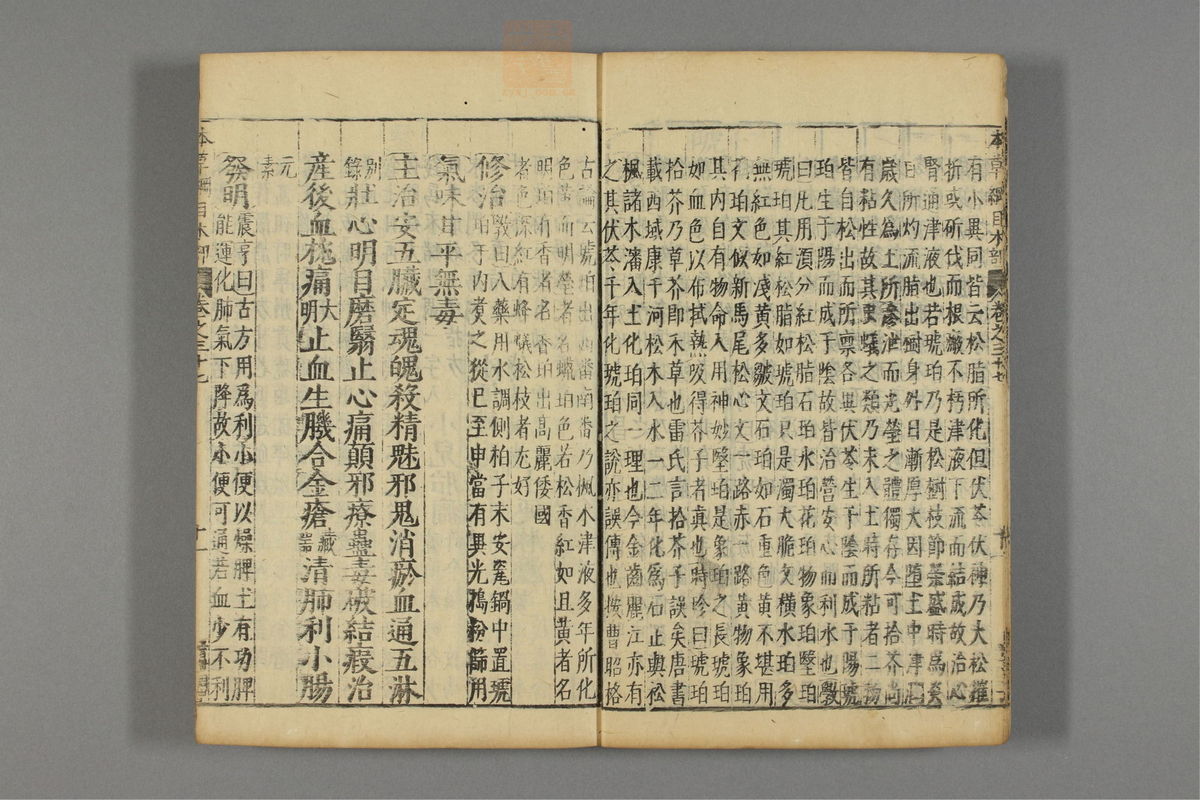 有小異同皆云松脂所化但伏苓伏神乃大松摧
折或斫伐而根瀕不朽津液下流而結成故治心
腎通津液也若琥珀乃是松樹枝節榮盛時為炎
日所灼流脂出樹身外日漸厚大因墮土中津潤
歲久為土所滲泄而光瑩之體獨存今可拾芥尚
有粘性故其虫蟻之類乃未入土時所粘者二物
皆自松出而所禀各異伏苓生于陰而成于陽琥
珀生于陽而成于陰故皆治營安心而利水也斆
曰凡用須分紅松脂石珀水珀花珀物象珀瑿珀
琥珀其紅松脂如琥珀只是濁大脆文橫水珀多
無紅色如淺黄多皺文石珀如石重色黄不堪用
花珀文似新馬尾松心文一路赤一路黄物象珀
其内自有物命入用神妙瑿珀是象珀之長琥珀
如血色以布拭熱吸得芥子者真也時珍曰琥珀
拾芥乃草芥即禾草也雷氏言拾芥子誤矣唐書
載西域康干河松木入水一二年化為石正與松
楓諸木瀋入土化珀同一理也今金齒麗江亦有
之其伏苓千年化琥珀之說亦誤傳也按曹昭格
古論云琥珀出西番南番乃楓木津液多年所化
色黄而明瑩者名蠟珀色若松香紅如且黄者名
明珀有香者名香珀出高麗倭國
者色深紅有蜂蟻松枝者尤好
修治斆曰入藥用水調側柏子末安瓷鍋中置琥
珀于内煑之從巳至申當有異光搗粉篩用
氣味甘平無毒
主治安五臟定魂魄殺精魅邪鬼消瘀血通五淋
别錄壯心明目磨翳止心痛顛邪療蠱毒破結瘕治
産後血㽲痛大明止血生肌合金瘡藏器清肺利小腸
元素
發明震亨曰古方用為利小便以燥脾土有功脾
能運化肺氣下降故小便可通若血少不利
本草綱目木部 卷之三十七
本草綱目木部 卷之三十七 十一